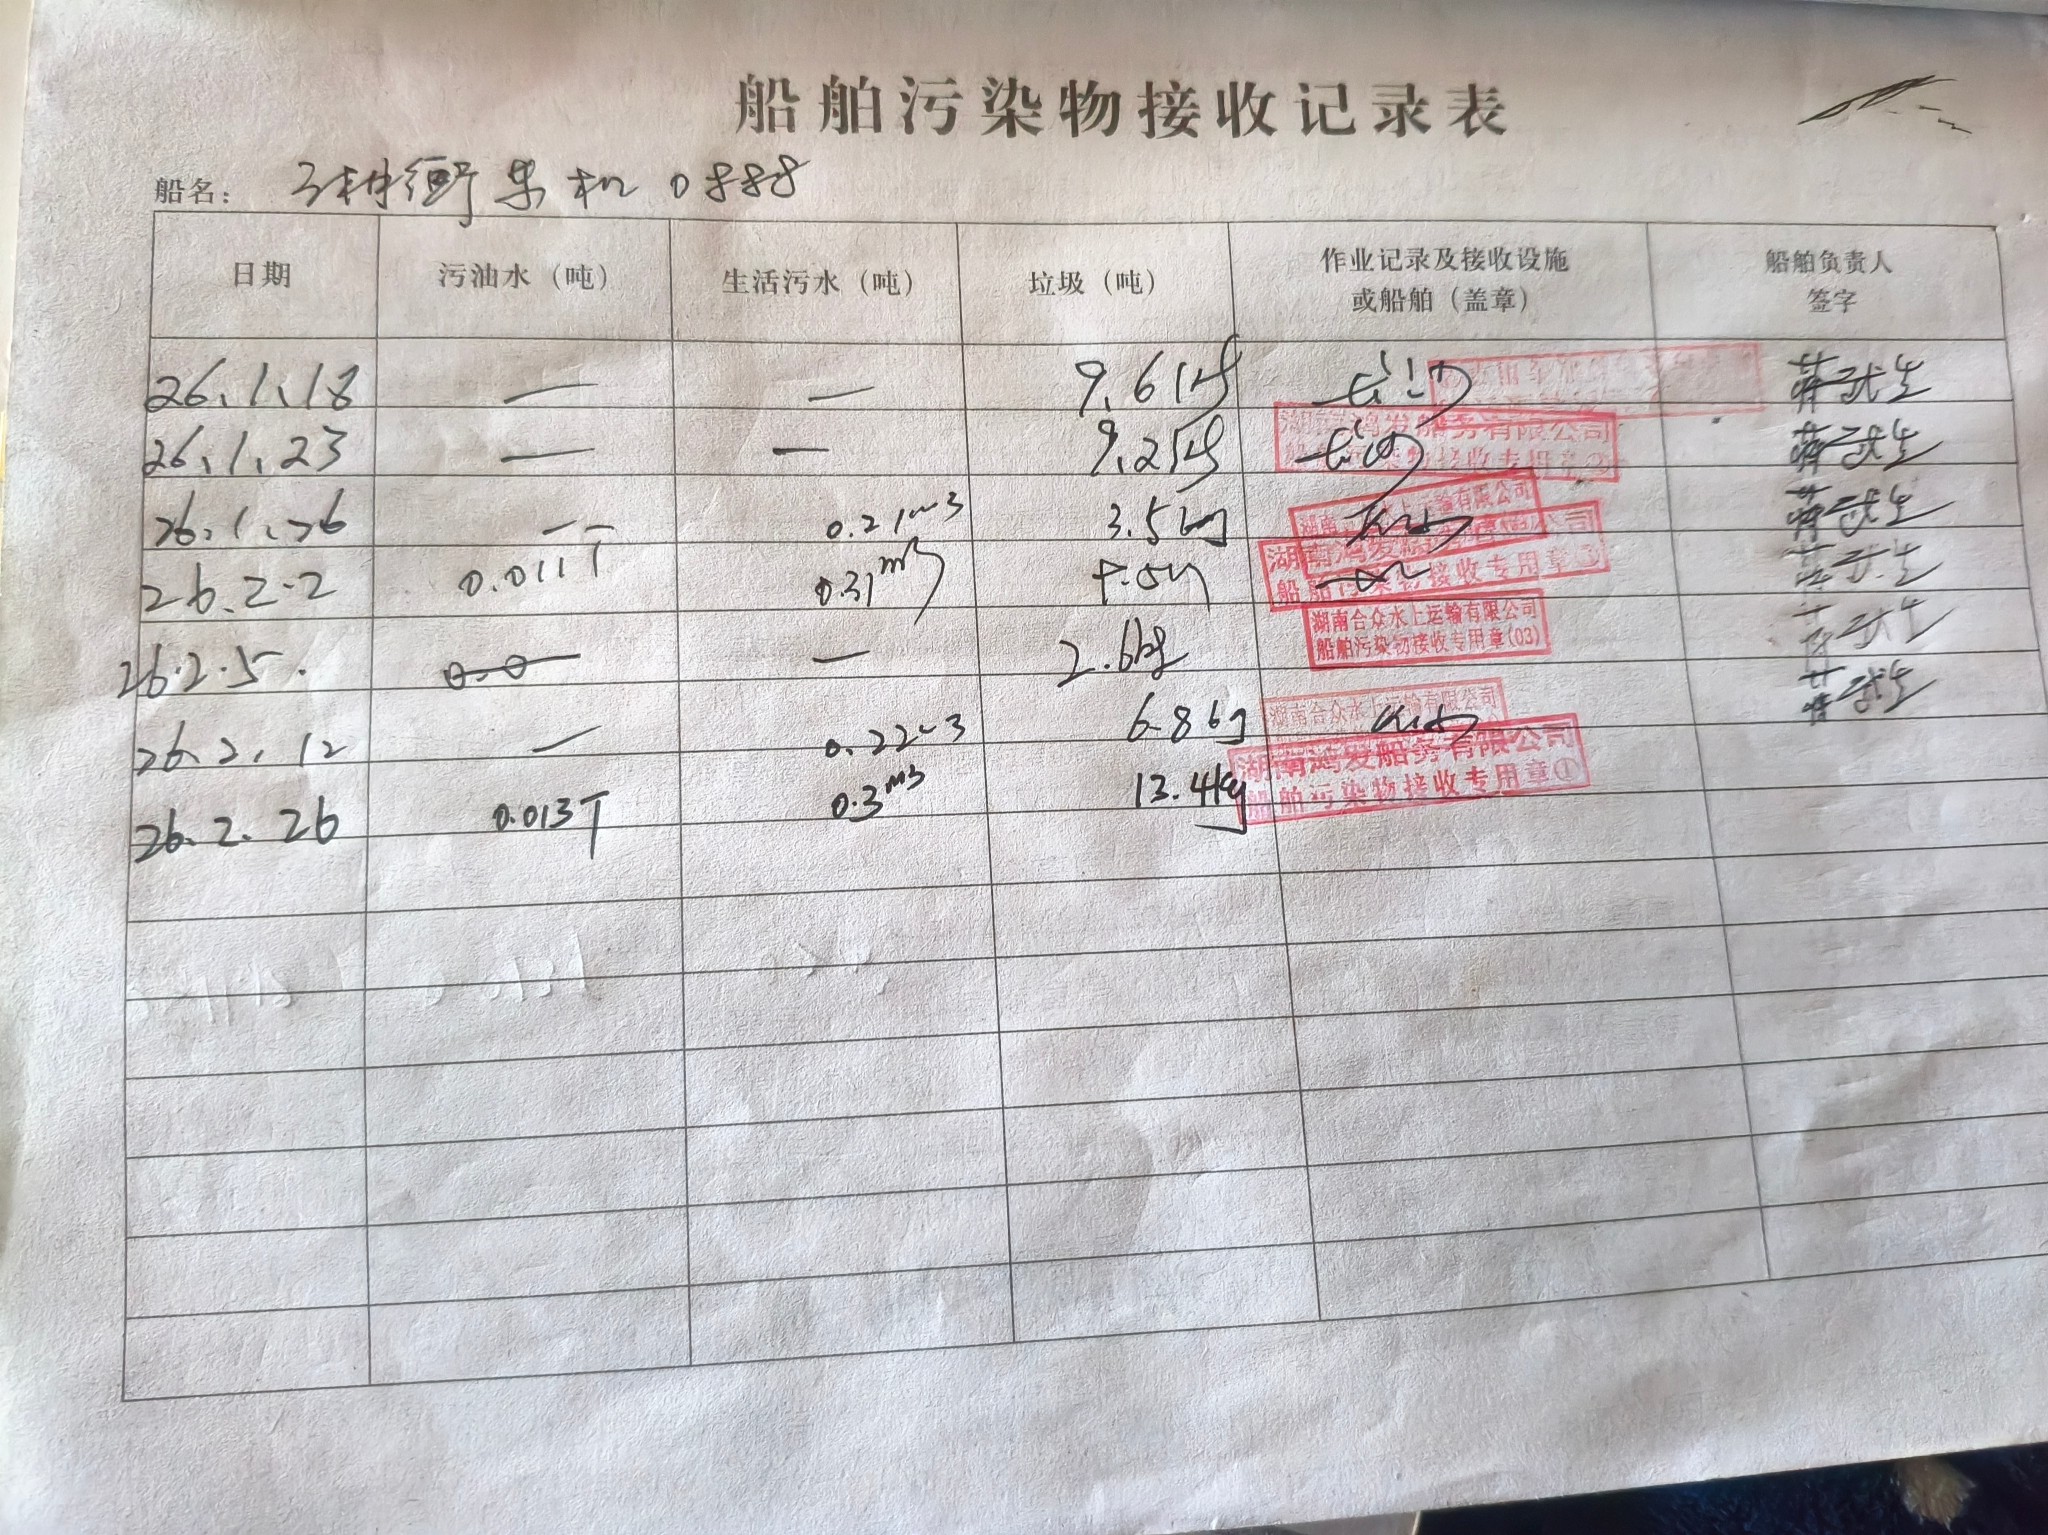 船舶污染物接收记录表
船名： 机0888
日期 污油水（吨） 生活污水（吨） 垃圾（吨） 作业记录及接收设施或船舶（盖章） 船舶负责人签字
26.1.18 — — 9.6kg
26.1.23 — — 9.2kg 湖南鸿发船务有限公司 船舶污染物接收专用章
26.1.26 — 0.21m3 3.5kg 水上运输有限公司
26.2.2 0.011T 0.31m3 湖南鸿发船务有限公司 船舶污染物接收专用章
26.2.5. — 2.6kg 湖南合众水上运输有限公司 船舶污染物接收专用章(03)
26.2.12 — 0.22m3 6.8kg 湖南合众水上运输有限公司
26.2.26 0.013T 0.3m3 13.4kg 湖南鸿发船务有限公司 船舶污染物接收专用章①